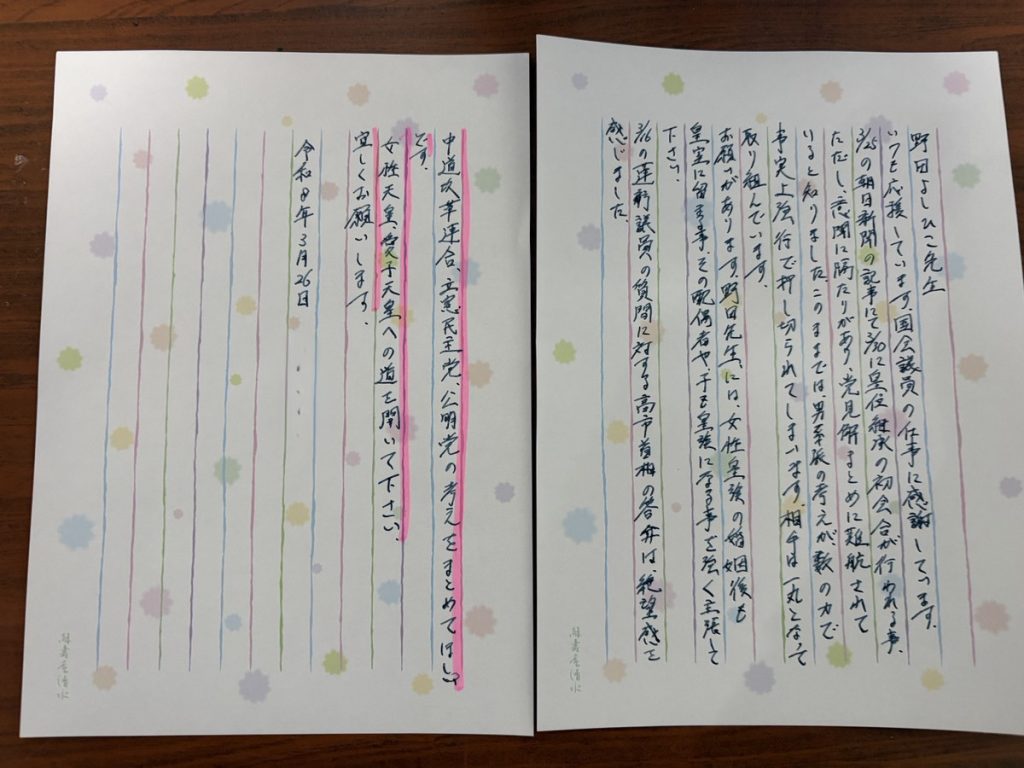 野田よしひこ先生
いつも応援しています。国会議員の仕事に感謝しています。
3/25の朝日新聞の記事にて3/30に皇位継承の初会合が行われる事、
ただし、意見に隔たりがあり、党見解まとめに難航されて
いると知りました。このままでは、男系派の考えが数の力で
事実上強行で押し切られてしまいます。相手は一丸となって
取り組んでいます。
お願いがあります。野田先生には、女性皇族の婚姻後も
皇室に留る事、その配偶者や、子も皇族になる事を強く主張して
下さい。
3/16の蓮舫議員の質問に対する高市首相の答弁は、絶望感を
感じました。
中道改革連合、立憲民主党、公明党の考えをまとめてほしい
です。
女性天皇、愛子天皇への道を開いて下さい。
宜しくお願いします。
令和8年3月26日